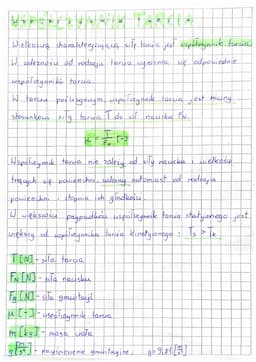 Współczynnik tarcia
Wielkością charakteryzującą siłę tarcia jest współczynnik tarcia.
W zależności od rodzaju tarcia wyróżnia się odpowiednie
współczynniki tarcia.
W tarciu poślizgowym, współczynnik tarcia jest równy
stosunkowi siły tarcia T do sił nacisku FN.
μ = T/FN [-]
Współczynnik tarcia nie zależy od siły nacisku i wielkości
trących się powierzchni, zależy natomiast od rodzaju
powierzchni i stopnia ich gładkości.
W większości przypadków współczynnik tarcia statycznego jest
większy od współczynnika tarcia kinetycznego: Ts > Tk
T [N] - siła tarcia
FN [N] - siła nacisku
Fg [N] - siła grawitacji
μ [-] - współczynnik tarcia
m [kg] - masa ciała
g [m/s²] - przyspieszenie grawitacyjne g=9,81 [m/s²]